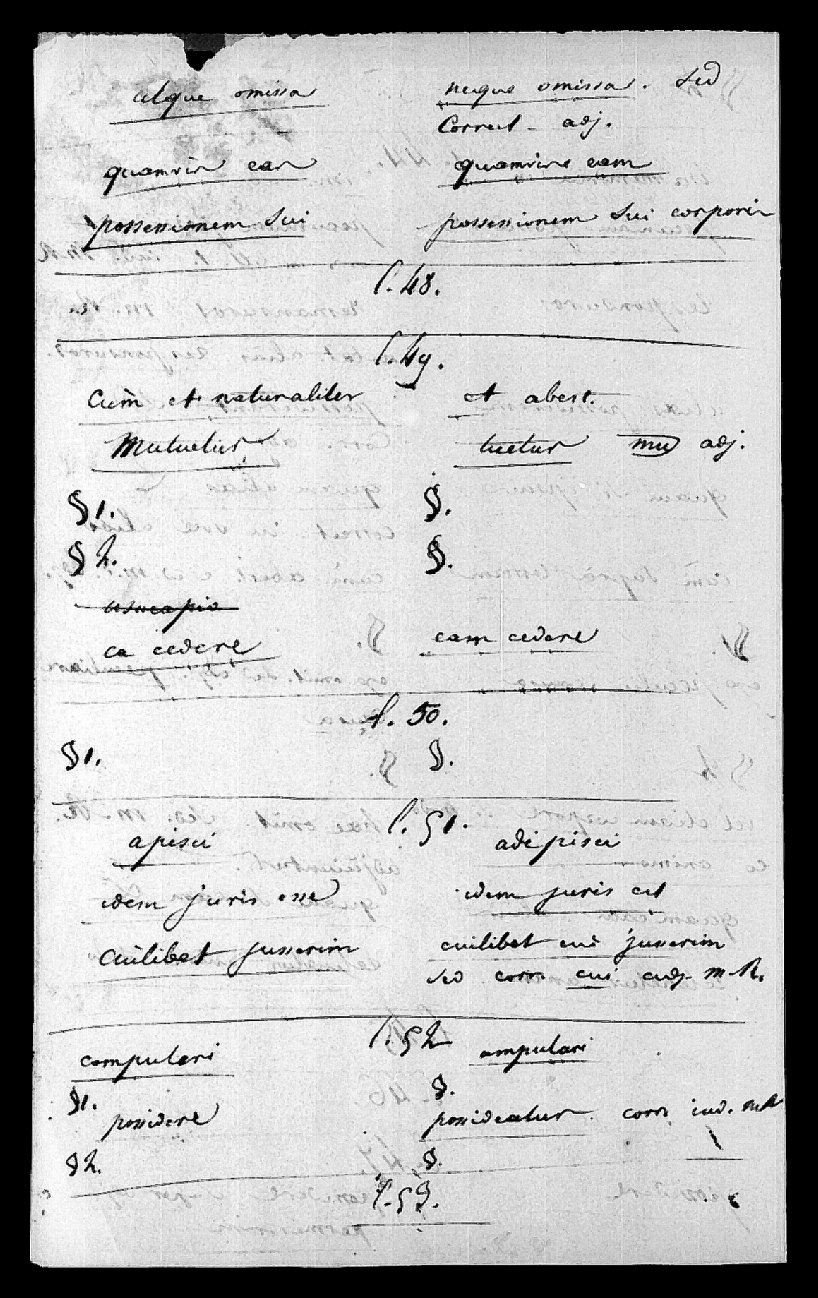 atque omissa neque omissa. Sed
Correct. adj.
quamvis eas quamvis eam
possessionem sui possessionem sui corporis
l. 48.
l. 49.
Cum et naturaliter et abest.
Mutuetur tuetur mu adj.
§ 1. §.
§ 2. §.
usucapio
ea cedere eam cedere
l. 50.
§ 1. §.
l. 51.
apisci adipisci
idem juris esse idem juris est
cuilibet jusserim cuilibet cui jusserim
sed corr. cui m. R.
l. 52
compulari ampulari
§ 1. §.
possidere possideatur corr. ead. m R
§ 2. §.
l. 53.